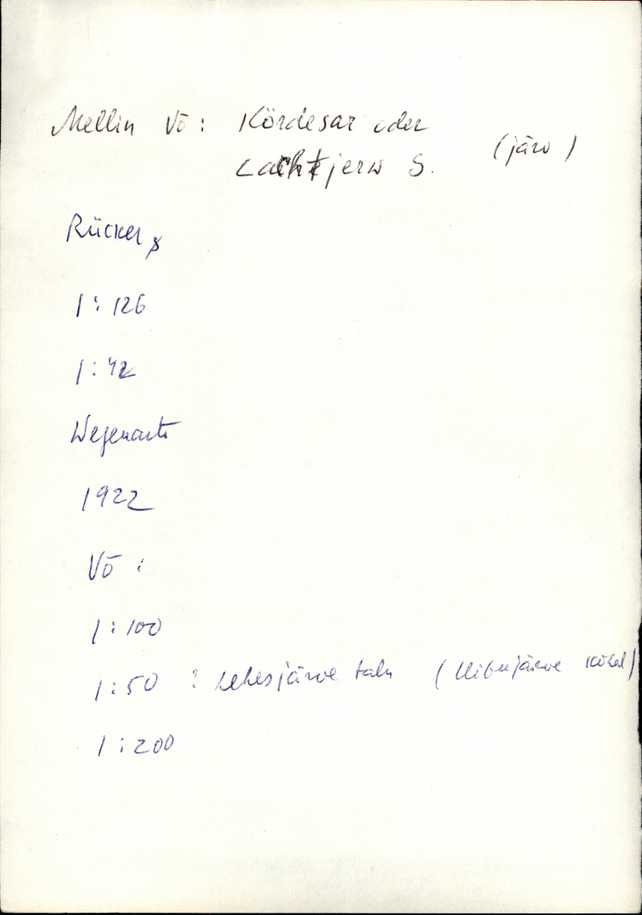 Mellin Võ: Kördesar oder
Lachtjerw S. (järv)
Rücker
1:126
1:42
Wegekarte
1922
Võ :
1:100
1:50 : Lehesjärve talu (Kibujärve
1:200